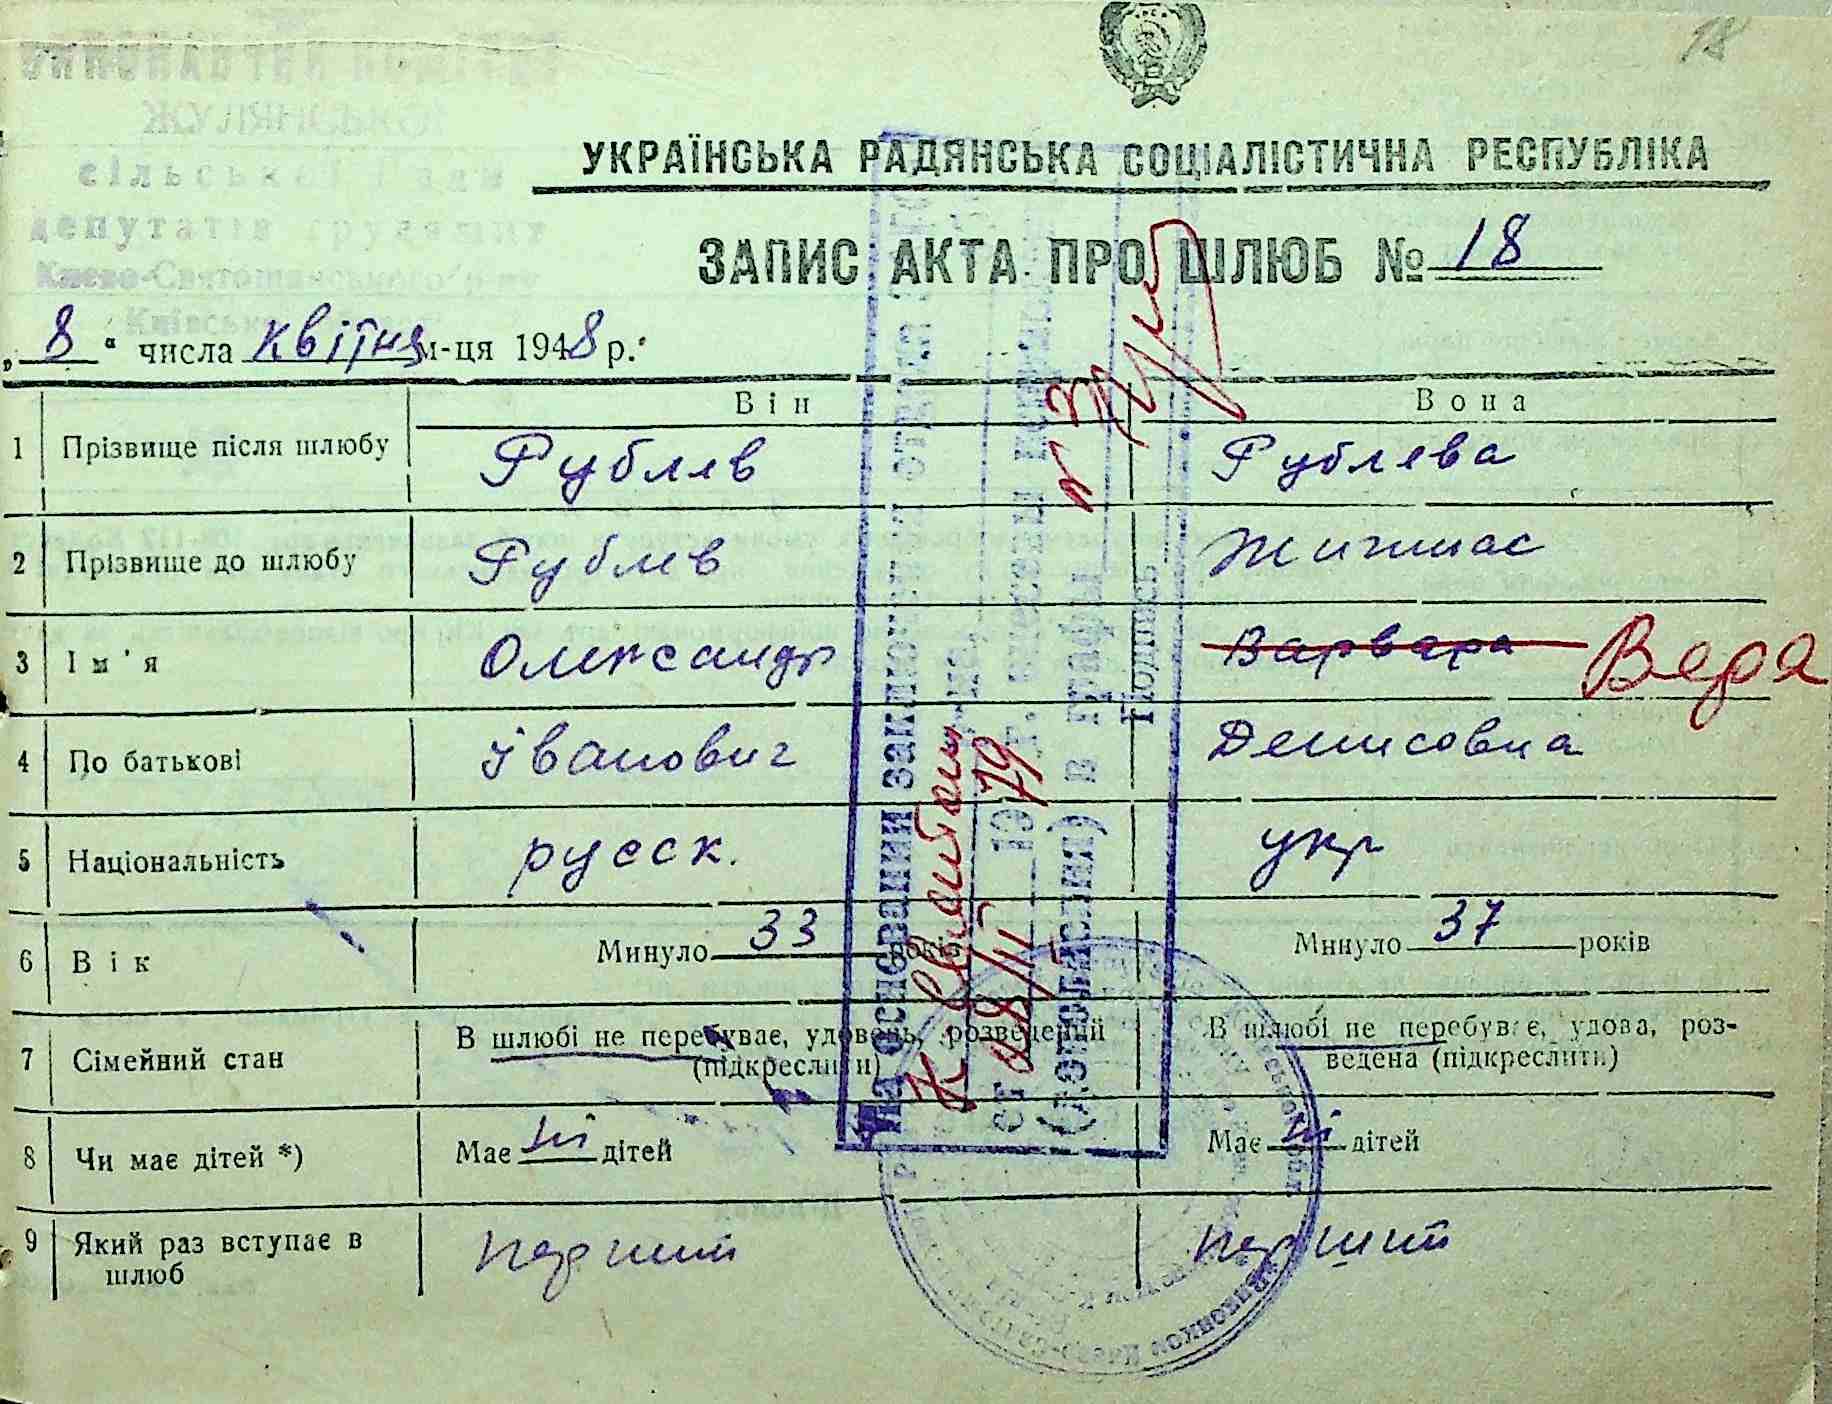 18
ВИКОНАВЧИЙ КОМІТЕТ
ЖУЛЯНСЬКОЇ
сільської Ради
депутатів трудящих
Києво-Святошинського р-ну
УКРАЇНСЬКА РАДЯНСЬКА СОЦІАЛІСТИЧНА РЕСПУБЛІКА
ЗАПИС АКТА ПРО ШЛЮБ № 18
„ 8 “ числа квітня м-ця 1948 р.
Він Вона
1 Прізвище після шлюбу Рублев Рублева
2 Прізвище до шлюбу Рублев
3 Ім'я Олександр Варвара Вера
4 По батькові Іванович Денисовна
5 Національність русск. укр
6 Вік Минуло 33 років Минуло 37 років
7 Сімейний стан В шлюбі не перебуває, удовець, розведений (підкреслити) В шлюбі не перебуває, удова, роз-
ведена (підкреслити)
8 Чи має дітей *) Має ні дітей Має ні дітей
9 Який раз вступає в шлюб перший перший
На основании записи
от 28/III 1979
(дополнения) в графы
Подпись